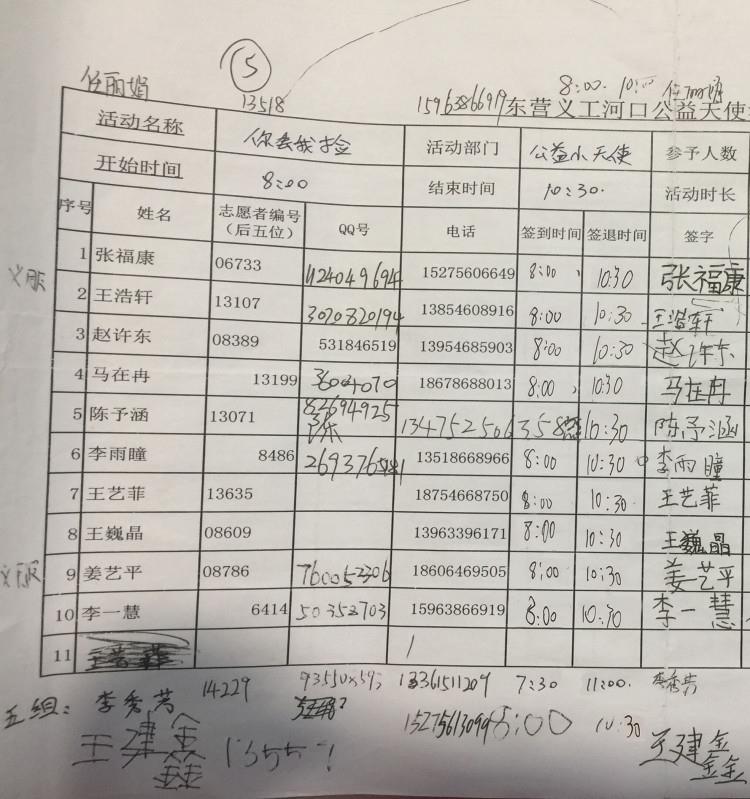 ⑤
任丽娟 13518 15963866919 8:00 10:00
东营义工河口公益天使
活动名称 你丢我捡 活动部门 公益小天使 参予人数
开始时间 8:00 结束时间 10:30. 活动时长
序号 姓名 志愿者编号（后五位） QQ号 电话 签到时间 签退时间 签字
1 张福康 06733 1124049694 15275606649 8:00 10:30 张福康
2 王浩轩 13107 3020820194 13854608916 8:00 10:30 王浩轩
3 赵许东 08389 531846519 13954685903 8:00 10:30 赵许东
4 马在冉 13199 36024070 18678688013 8:00 10:30 马在冉
5 陈予涵 13071 82694925 10:30 陈予涵
6 李雨瞳 8486 13518668966 8:00 10:30 李雨瞳
7 王艺菲 13635 18754668750 8:00 10:30 王艺菲
8 王巍晶 08609 13963396171 8:00 10:30 王巍晶
义服 9 姜艺平 08786 760052306 18606469505 8:00 10:30 姜艺平
10 李一慧 6414 50352703 15963866919 8:00 10:30 李一慧
11
五组: 李秀芳 14229 13361511209 7:30 11:00. 李秀芳
王建鑫 13557 15275613099 8:00 10:30 王建鑫